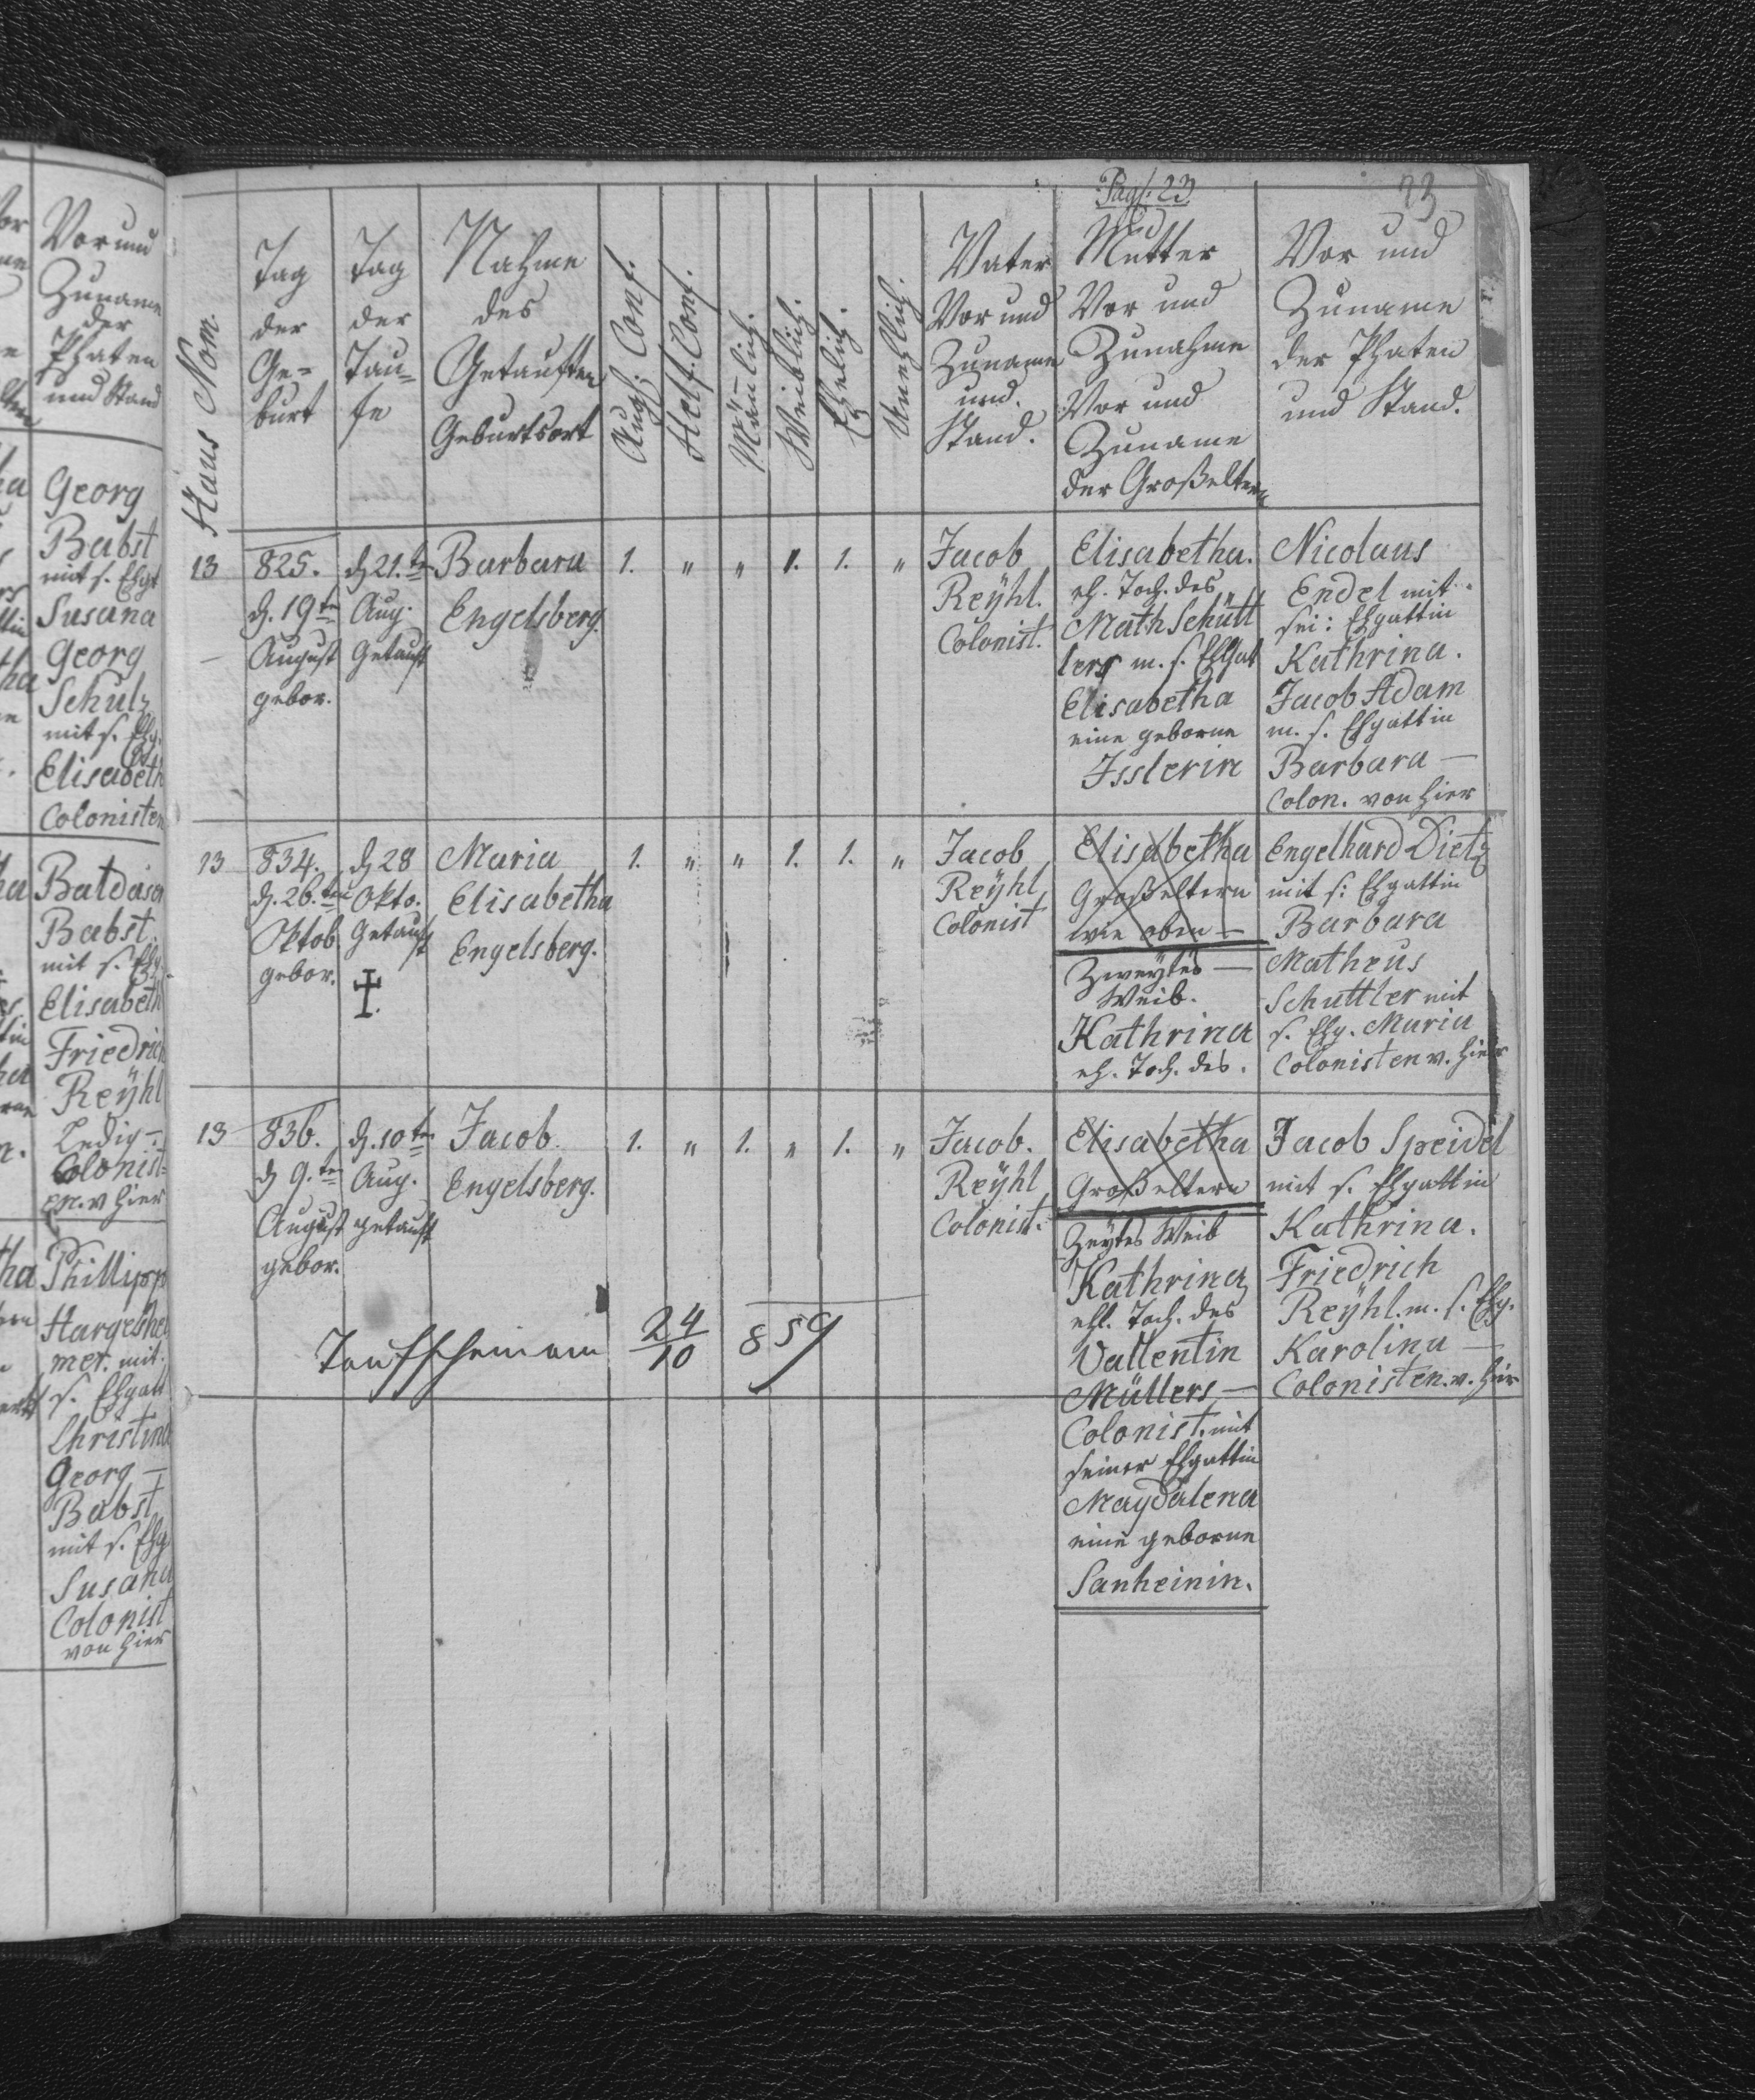 Vor und
Zuname
der
Phaten
und Stand
Georg
Babst
mit s. Ehgt
Susana
Georg
Schulz
mit s. Ehg.
Elisabeth
Colonisten
Baldasar
Babst.
mit s. Ehg
Elisabeth
Friedrich
Reÿhl
Ledig
Colonist=
en. v hier
Phillipp
Hargeshei
mer. mit
s. Ehgatt
Christina
Georg —
Babst
mit s. Ehg
Susana
Colonist
von hier
Pag: 23
23
Haus Nom.
Tag
der
Ge=
burt
Tag
der
Tau=
fe
Nahme
des
Getauften
Geburtsort
Augs. Conf.
Helf. Conf.
Mänlich.
Weiblich.
Ehelich.
Unehlich.
Vater
Vor und
Zuname
und
Stand.
Mutter
Vor und
Zunahme
Vor und
Zuname
der Großeltern
Vor und
Zuname
der Phaten
und Stand.
13
825.
d. 19ten
August
gebor.
d 21.ten
Aug.
getauft
Barbara
Engelsberg.
1. " " 1. 1. "
Jacob
Reÿhl.
Colonist.
Elisabetha.
eh. Toch. des
Math Schütt
lers m. s. Ehgat
Elisabetha
eine geborne
Isslerin
Nicolaus
Endel mit
sei: Ehgattin
Kathrina.
Jacob Adam
m. s. Ehgattin
Barbara —
Colon. von hier
13
834.
d. 26.ten
Oktob
gebor.
d 28
Okto.
getauft
Maria
Elisabetha
Engelsberg.
1. " " 1. 1. "
Jacob
Reÿhl
Colonist
Elisabetha
Großeltern
wie oben —
Zweytes —
Weib.
Kathrina
eh. Toch. des.
Engelhard Dietz
mit s: Ehgattin
Barbara
Matheus
Schuttler mit
s. Ehg. Maria
Colonisten v. hier
13
836.
d 9.ten
August
gebor.
d. 10ten
Aug.
getauft
Jacob.
Engelsberg.
1. " 1. " 1. "
Jacob.
Reÿhl
Colonist.
Elisabetha
Großeltern
Zeytes Weib
Kathrina
ehl. Toch. des
Vallentin
Müllers —
Colonist. mit
seiner Ehgattin
Magdalena
eine geborne
Sanheinin.
Jacob Speidel
mit s. Ehgattin
Kathrina.
Friedrich
Reÿhl. m. s. Ehg.
Karolina —
Colonisten. v. hier
Taufschein am 24/10 859